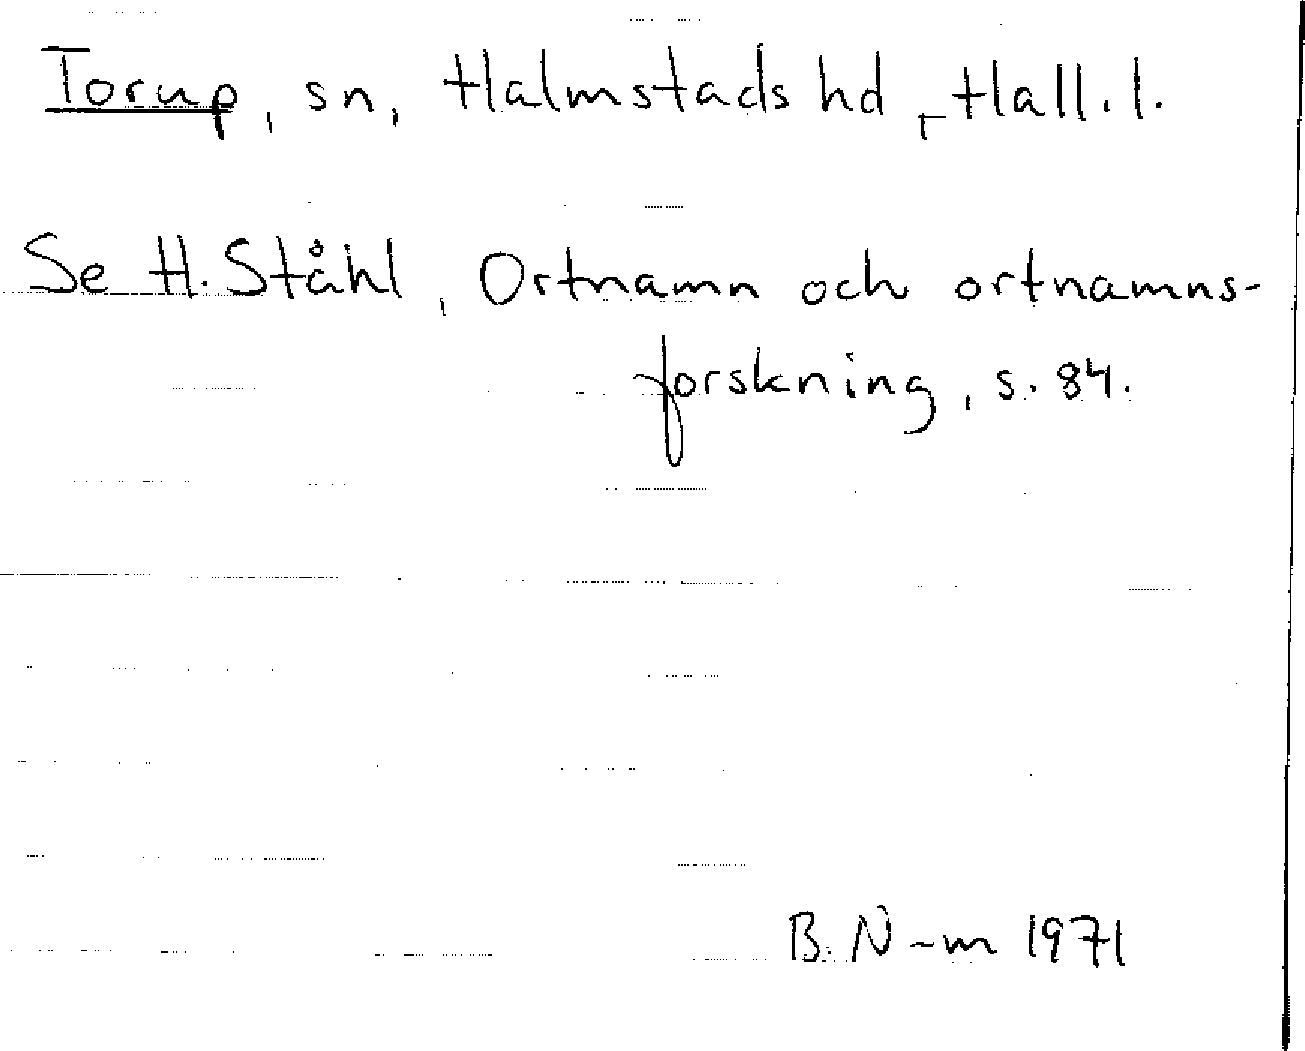 Torup, sn, Halmstads hd, Hall. l.
Se H. Ståhl, Ortnamn och ortnamns-
forskning, s. 84.
B. N-m 1971